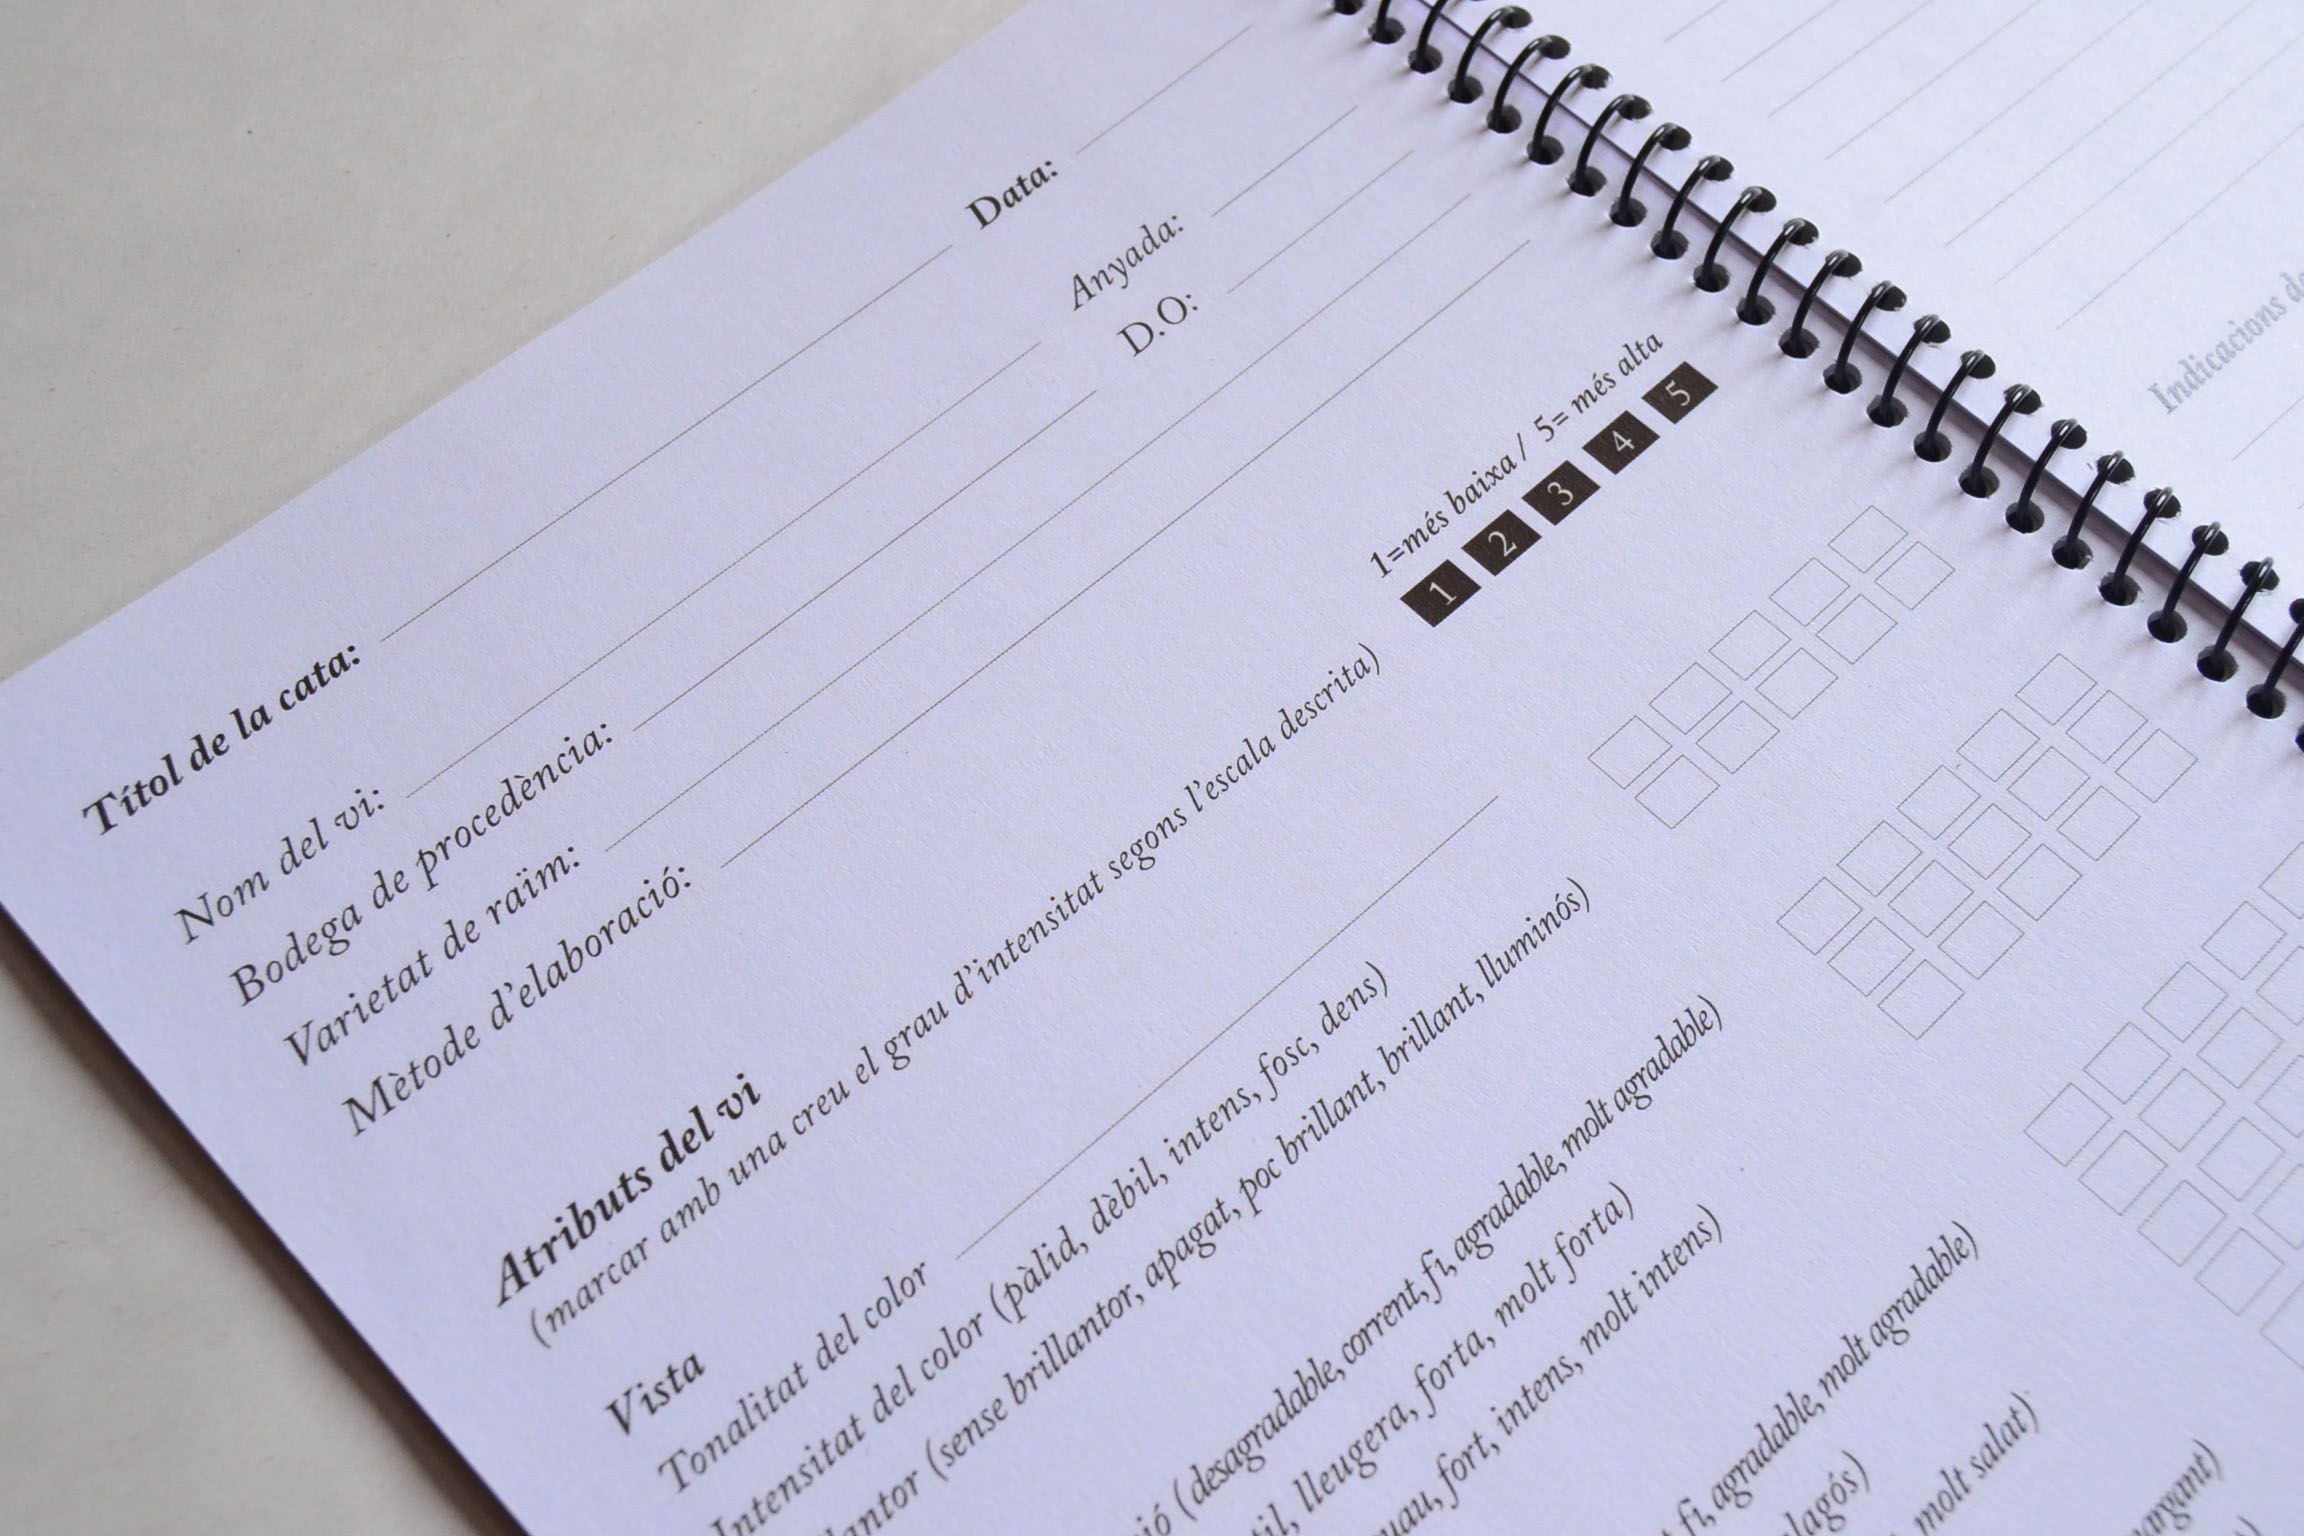 Títol de la cata: Data:
Nom del vi: Anyada:
Bodega de procedència: D.O:
Varietat de raïm:
Mètode d'elaboració:
Atributs del vi
1=més baixa / 5= més alta
(marcar amb una creu el grau d'intensitat segons l'escala descrita) 1 2 3 4 5
Vista
Tonalitat del color
Intensitat del color (pàlid, dèbil, intens, fosc, dens)
(sense brillantor, apagat, poc brillant, brillant, lluminós)
(desagradable, corrent, fi, agradable, molt agradable)
lleugera, forta, molt forta)
fort, intens, molt intens)
fi, agradable, molt agradable)
molt salat)
Indicacions